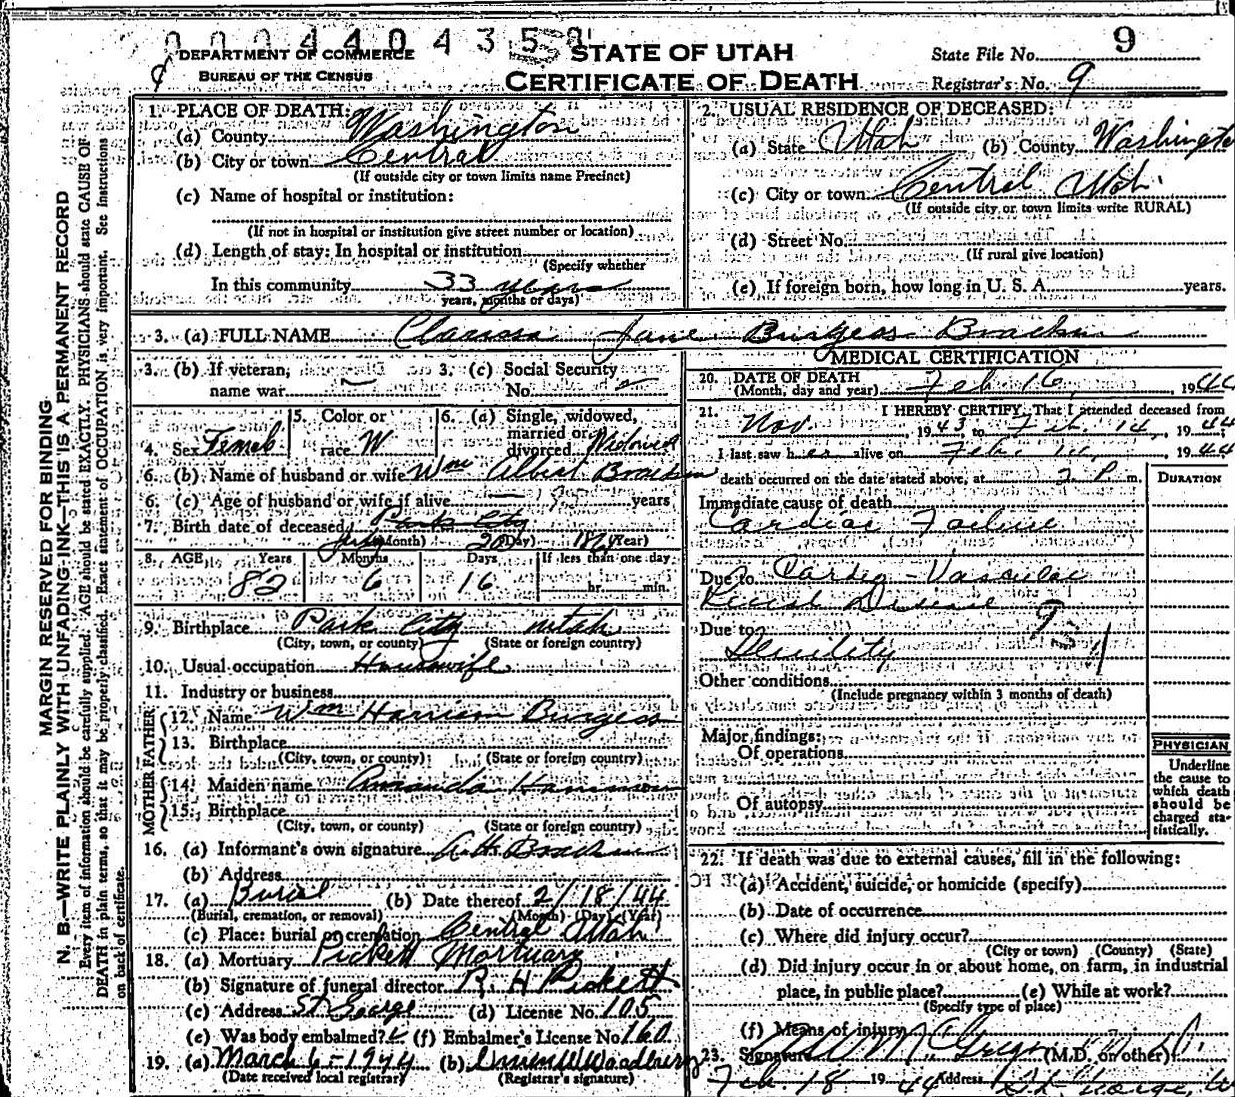 0004404358
DEPARTMENT OF COMMERCE
BUREAU OF THE CENSUS
STATE OF UTAH
CERTIFICATE OF DEATH
State File No. 9
Registrar's No. 9
MARGIN RESERVED FOR BINDING
N. B.—WRITE PLAINLY WITH UNFADING INK—THIS IS A PERMANENT RECORD
Every item of information should be carefully supplied. AGE should be stated EXACTLY. PHYSICIANS should state CAUSE OF
DEATH in plain terms, so that it may be properly classified. Exact statement of OCCUPATION is very important. See instructions
on back of certificate.
1. PLACE OF DEATH:
(a) County Washington
(b) City or town Central
(If outside city or town limits name Precinct)
(c) Name of hospital or institution:
(If not in hospital or institution give street number or location)
(d) Length of stay: In hospital or institution
(Specify whether
In this community 33 years
years, months or days)
2. USUAL RESIDENCE OF DECEASED:
(a) State Utah (b) County Washington
(c) City or town Central Utah
(If outside city or town limits write RURAL)
(d) Street No.
(If rural give location)
(e) If foreign born, how long in U. S. A. years.
3. (a) FULL NAME Clarissa Jane Burgess Bracken
3. (b) If veteran, name war
3. (c) Social Security No.
4. Sex Female
5. Color or race W
6. (a) Single, widowed, married or divorced Widowed
6. (b) Name of husband or wife Wm Albert Bracken
6. (c) Age of husband or wife if alive years
7. Birth date of deceased Park City
July 20
(Month) (Day) (Year)
8. AGE Years Months Days If less than one day
82 6 16 hr. min.
9. Birthplace Park City Utah
(City, town, or county) (State or foreign country)
10. Usual occupation Housewife
11. Industry or business
FATHER
12. Name Wm Harrison Burgess
13. Birthplace
(City, town, or county) (State or foreign country)
MOTHER
14. Maiden name Amanda Hammon
15. Birthplace
(City, town, or county) (State or foreign country)
16. (a) Informant's own signature Bracken
(b) Address
17. (a) Burial (b) Date thereof 2/18/44
(Burial, cremation, or removal) (Month) (Day) (Year)
(c) Place: burial or cremation Central Utah
18. (a) Mortuary Pickett Mortuary
(b) Signature of funeral director R. H Pickett
(c) Address St George (d) License No. 105
(e) Was body embalmed? (f) Embalmer's License No. 160
19. (a) March 6-1944 (b) Woodbury
(Date received local registrar) (Registrar's signature)
MEDICAL CERTIFICATION
20. DATE OF DEATH
(Month, day and year) Feb 16, 1944
21. I HEREBY CERTIFY, That I attended deceased from
Nov. , 1943 to Feb. 14, 1944
I last saw her alive on Feb. 14, 1944
death occurred on the date stated above, at 2 P m.
DURATION
Immediate cause of death
Cardiac Failure
Due to Cardio-Vascular
Renal Disease
Due to
Senility
Other conditions
(Include pregnancy within 3 months of death)
Major findings:
Of operations
Of autopsy
PHYSICIAN
Underline
the cause to
which death
should be
charged sta-
tistically.
22. If death was due to external causes, fill in the following:
(a) Accident, suicide, or homicide (specify)
(b) Date of occurrence
(c) Where did injury occur?
(City or town) (County) (State)
(d) Did injury occur in or about home, on farm, in industrial
place, in public place? (e) While at work?
(Specify type of place)
(f) Means of injury
23. Signature McGregor (M.D. or other)
Feb. 18 1944 Address St. George, U